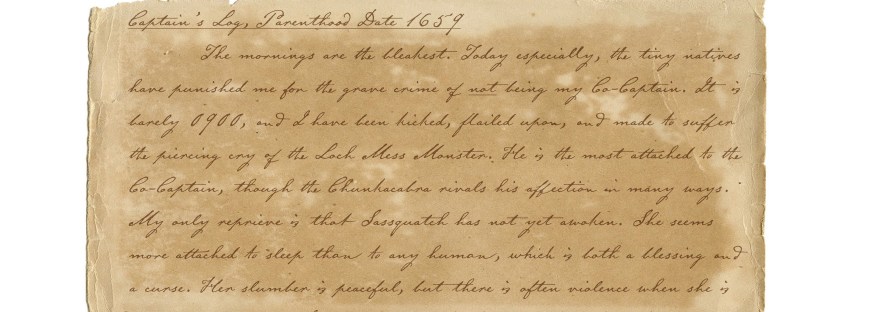 Captain's Log, Parenthood Date 1659
The mornings are the bleakest. Today especially, the tiny natives
have punished me for the grave crime of not being my Co-Captain. It is
barely 0900, and I have been kicked, flailed upon, and made to suffer
the piercing cry of the Loch Mess Monster. He is the most attached to the
Co-Captain, though the Chunkacabra rivals his affection in many ways.
My only reprieve is that Sassquatch has not yet awoken. She seems
more attached to sleep than to any human, which is both a blessing and
a curse. Her slumber is peaceful, but there is often violence when she is